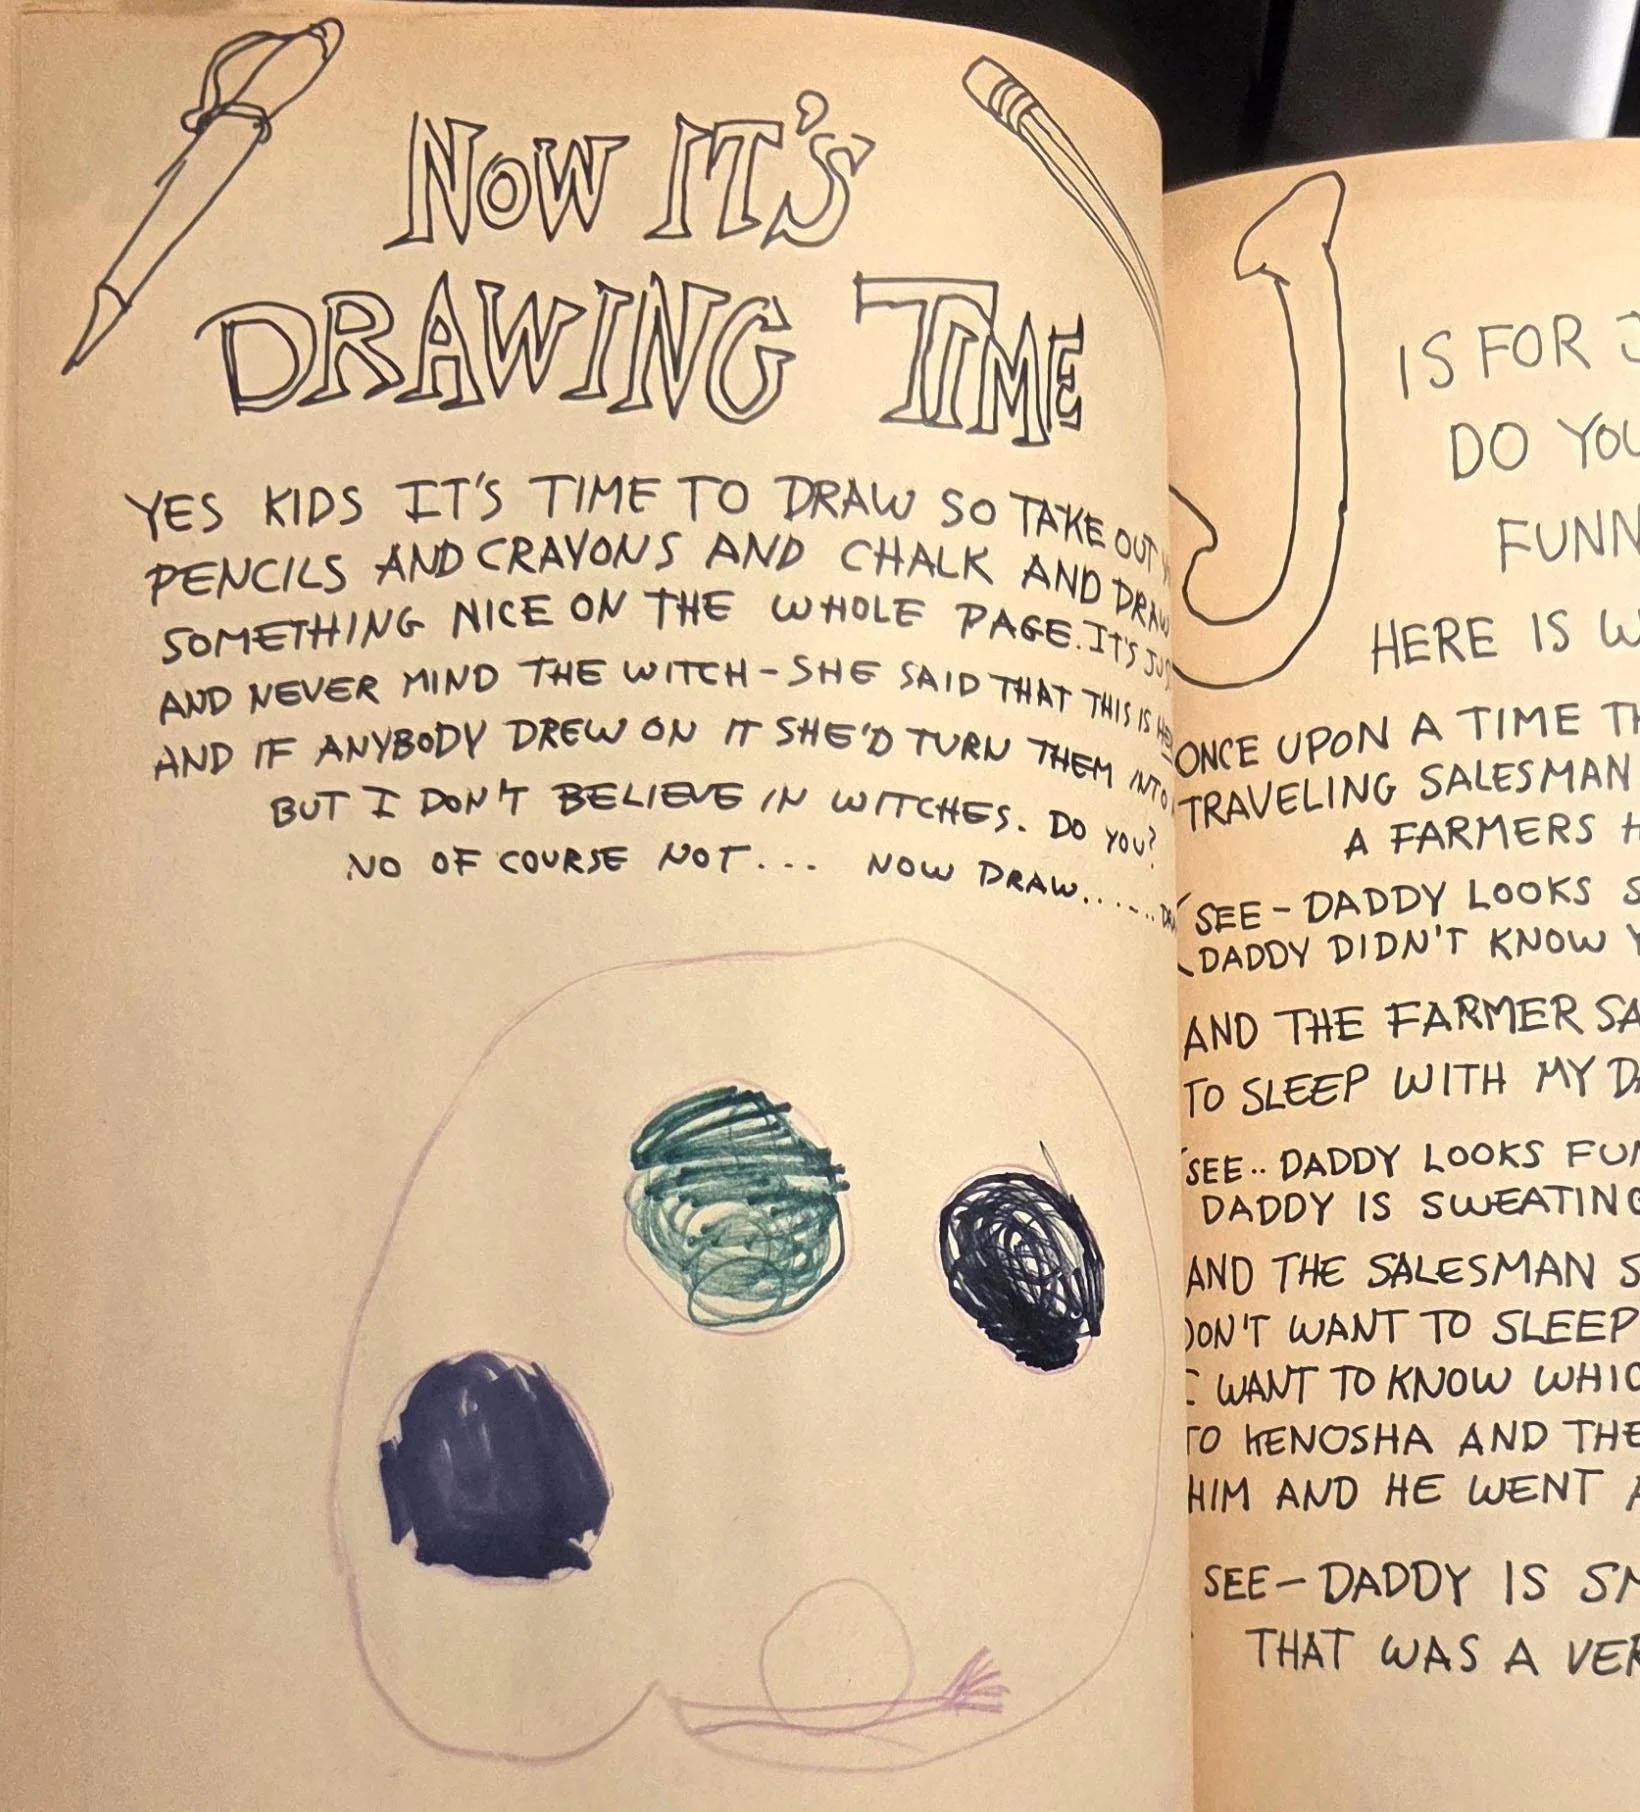 NOW IT'S
DRAWING TIME
YES KIDS IT'S TIME TO DRAW SO TAKE OUT
PENCILS AND CRAYONS AND CHALK AND DRAW
SOMETHING NICE ON THE WHOLE PAGE. IT'S
AND NEVER MIND THE WITCH - SHE SAID THAT THIS IS
AND IF ANYBODY DREW ON IT SHE'D TURN THEM INTO
BUT I DON'T BELIEVE IN WITCHES. DO YOU?
NO OF COURSE NOT... NOW DRAW.....
J
IS FOR J
DO YOU
FUNN
HERE IS W
ONCE UPON A TIME TH
TRAVELING SALESMAN
A FARMERS H
SEE - DADDY LOOKS S
DADDY DIDN'T KNOW Y
AND THE FARMER SA
TO SLEEP WITH MY DA
SEE.. DADDY LOOKS FUN
DADDY IS SWEATING
AND THE SALESMAN S
DON'T WANT TO SLEEP
I WANT TO KNOW WHIC
TO KENOSHA AND THE
HIM AND HE WENT A
SEE - DADDY IS SM
THAT WAS A VER